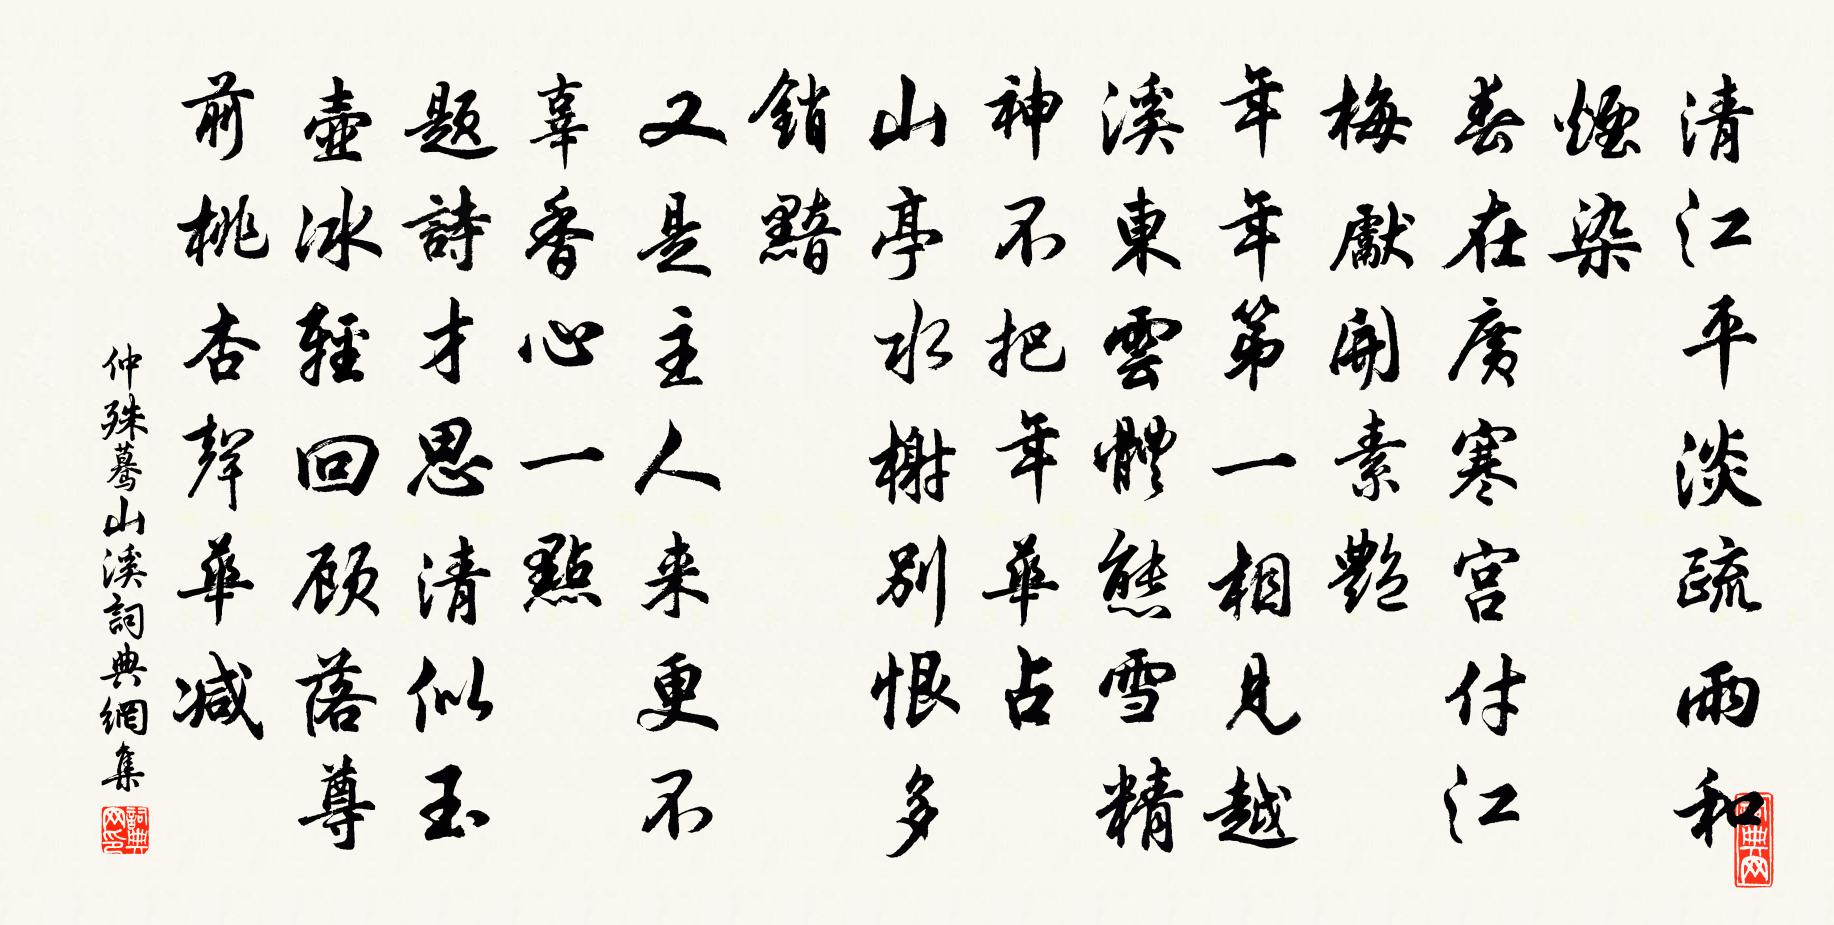 清江平淡疏雨和
煙染
春在廣寒宮付江
梅獻開素艷
年年第一相見越
溪東雲體態雪精
神不把年華占
山亭水榭別恨多
銷黯
又是主人来更不
辜香心一點
題詩才思清似玉
壺冰輕回顾落尊
前桃杏聲華减
仲殊驀山溪詞典網集
詞典網印
詞典网